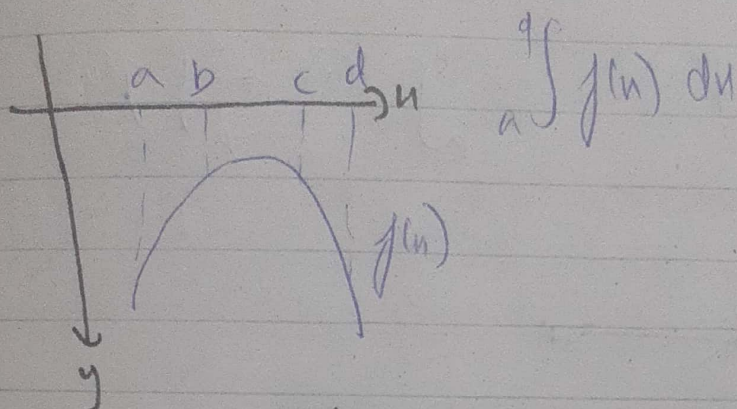 a b c d
x
d∫a f(x) dx
f(x)
y